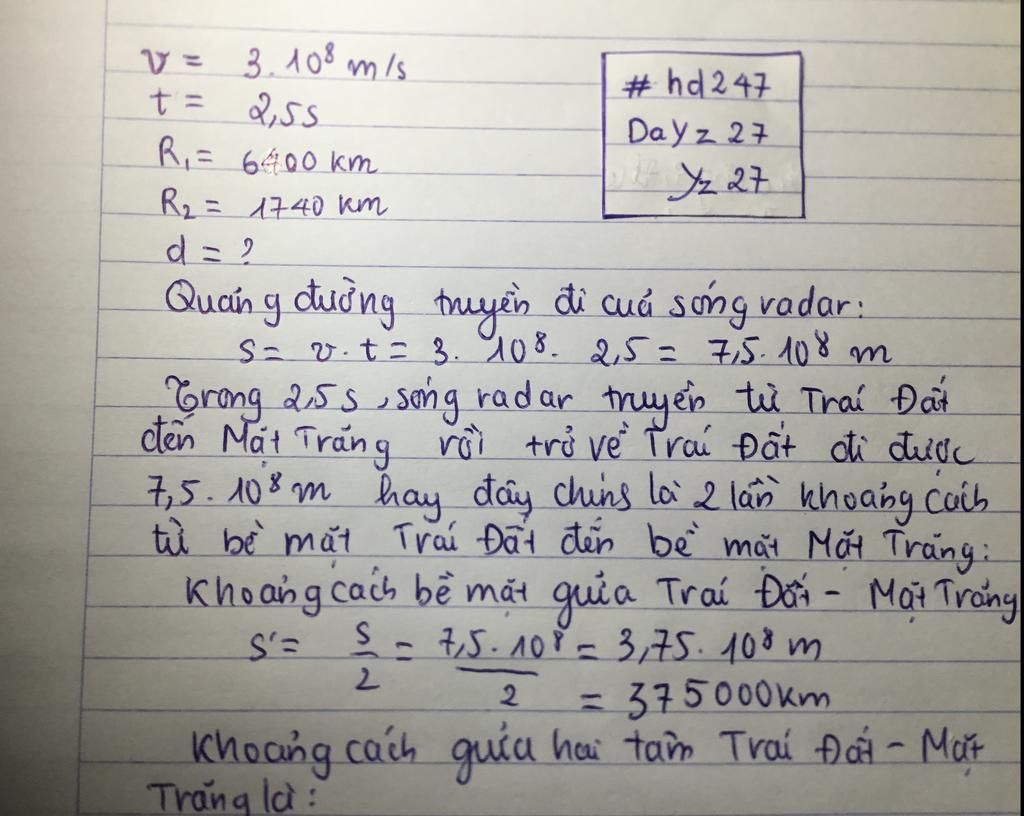 v = 3.10⁸ m/s
t = 2,5s
R₁ = 6400 km
R₂ = 1740 km
d = ?
# hd247
DaYz 27
Yz 27
Quãng đường truyền đi của sóng radar:
s = v.t = 3. 10⁸. 2,5 = 7,5.10⁸ m
Trong 2,5s, sóng radar truyền từ Trái Đất
đến Mặt Trăng rồi trở về Trái Đất đi được
7,5.10⁸ m hay đây chính là 2 lần khoảng cách
từ bề mặt Trái Đất đến bề mặt Mặt Trăng:
Khoảng cách bề mặt giữa Trái Đất - Mặt Trăng
s' = s/2 = 7,5.10⁸/2 = 3,75.10⁸ m
= 375000km
Khoảng cách giữa hai tâm Trái Đất - Mặt
Trăng là: